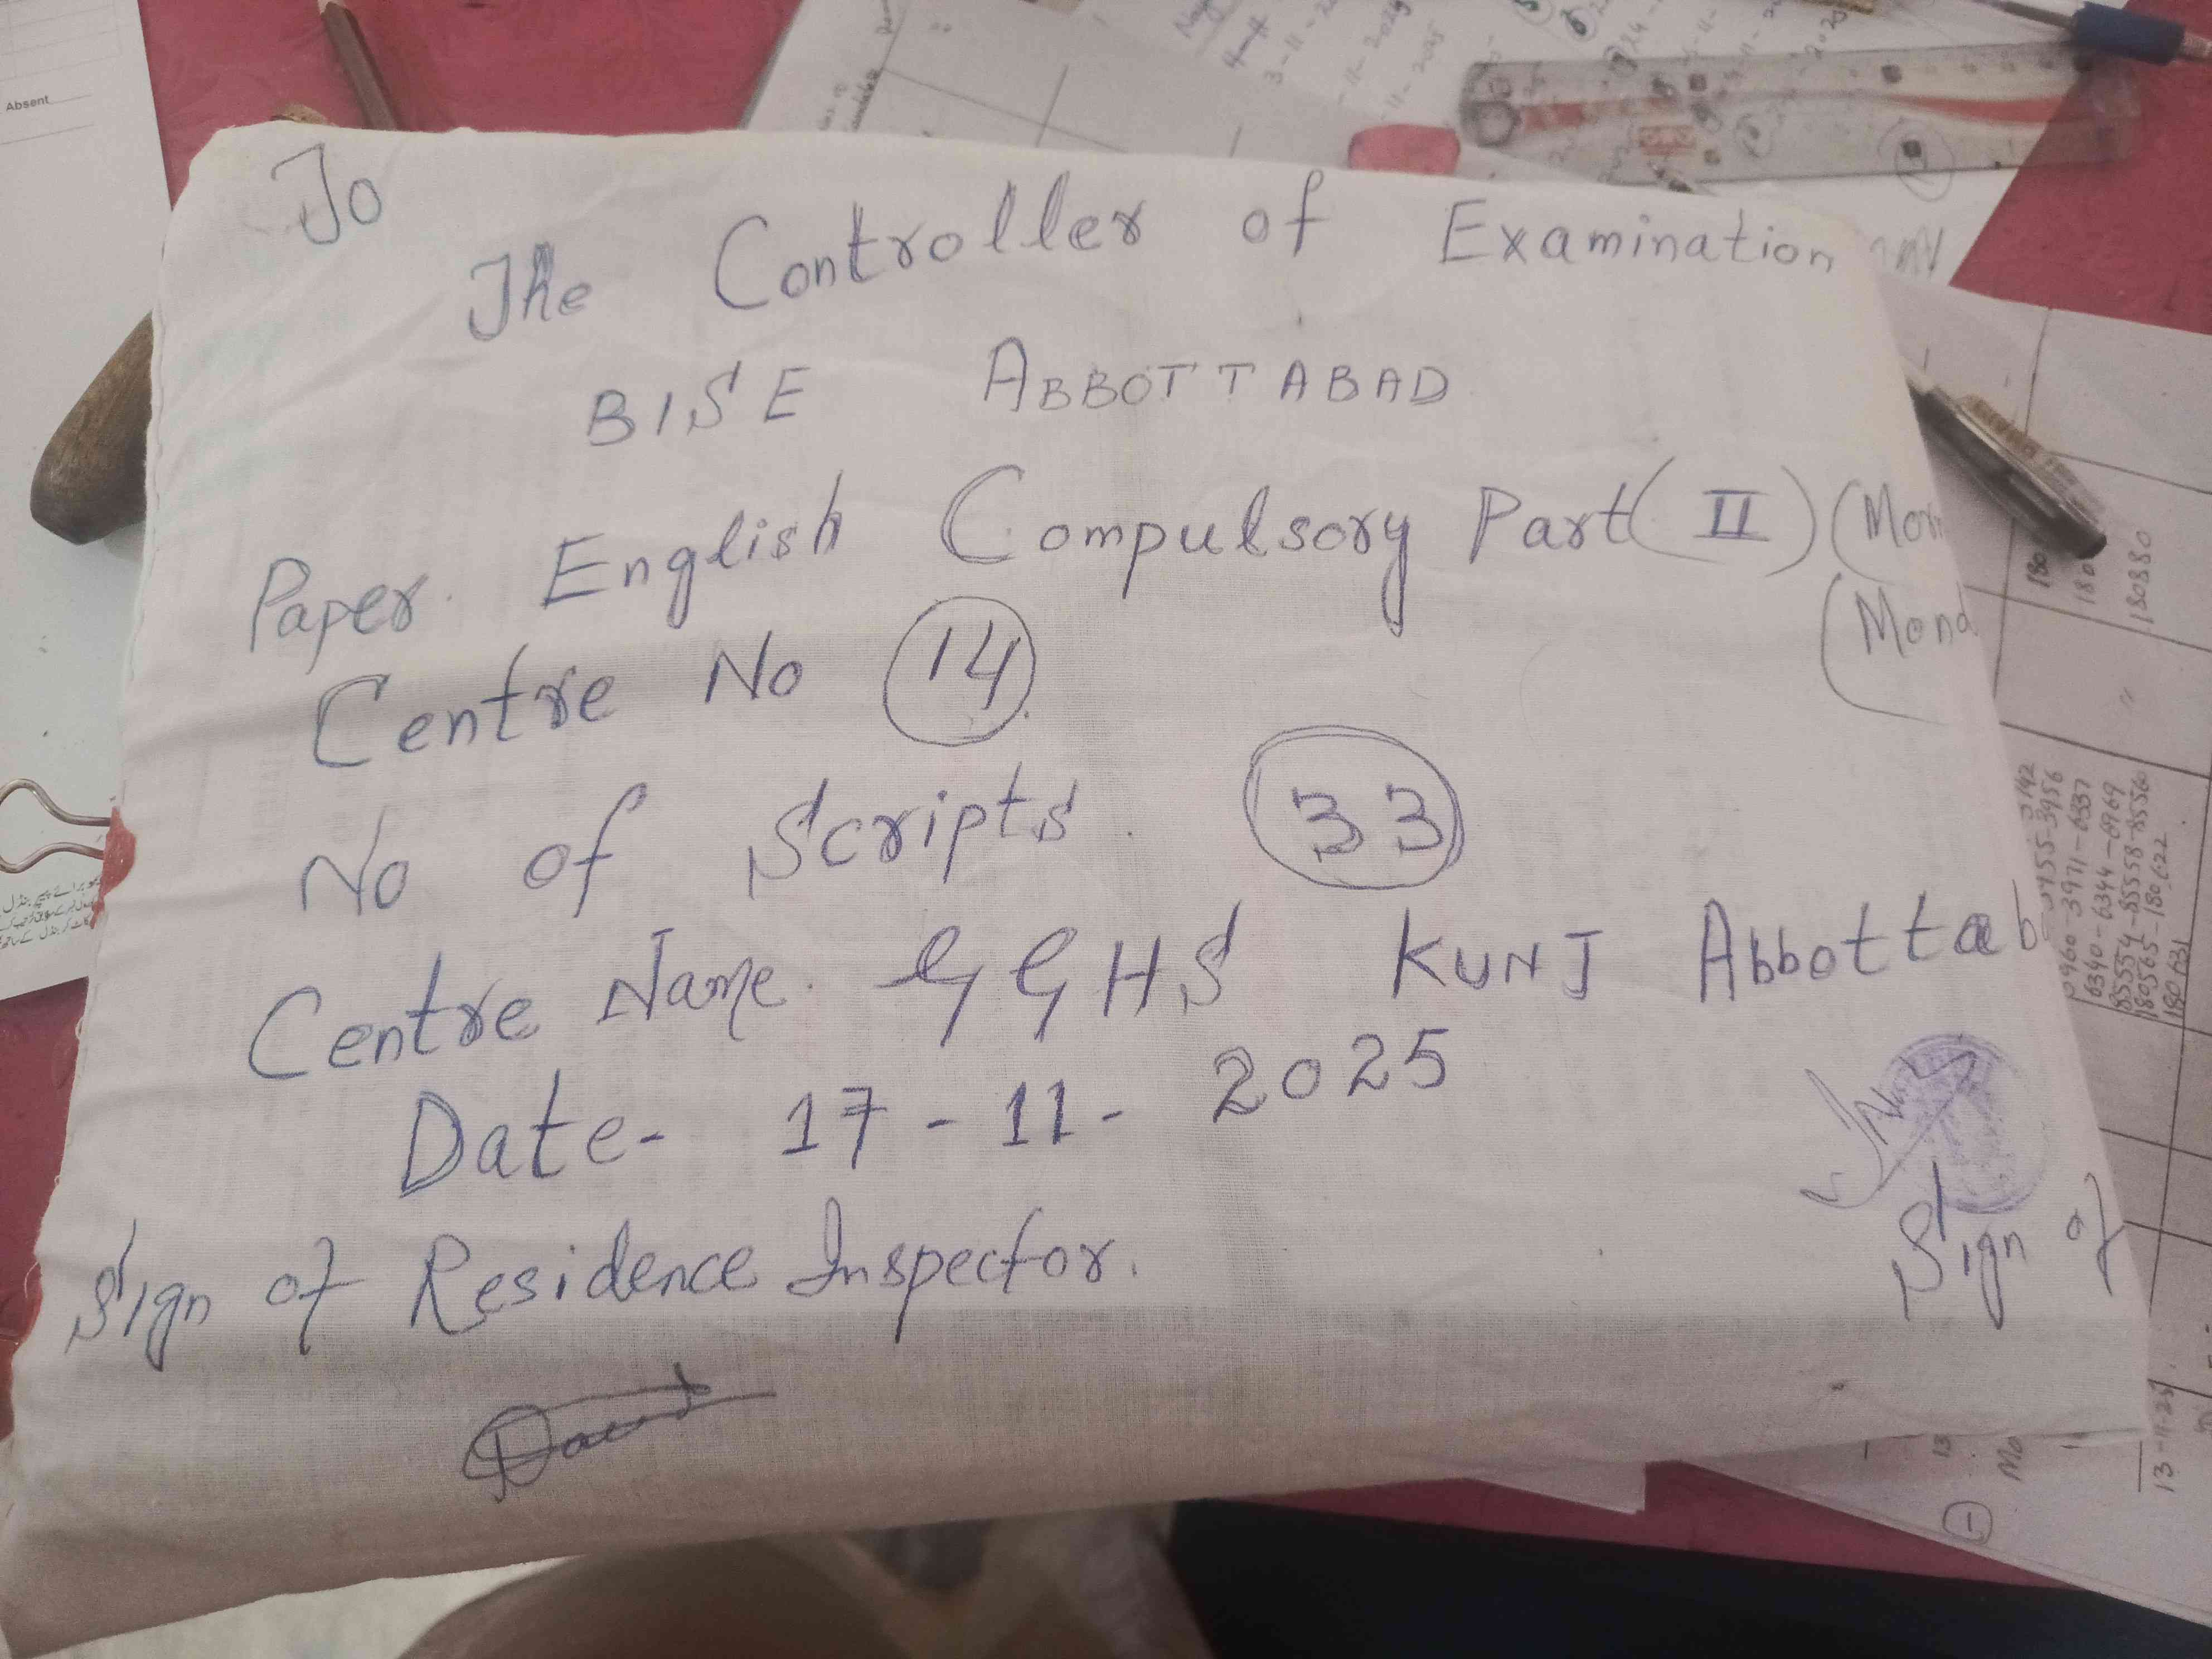 Absent
To
The Controller of Examination
BISE ABBOTTABAD
Paper. English Compulsory Part (II) (Mor
(Mond
Centre No 14
No of Scripts. 33
Centre Name. GGHS KUNJ Abbottab
Date- 17-11-2025
Sign of Residence Inspector.
Sign of
180880
3971-6337
6340-6344-6969
85554-85558-85560
180565-180622
180631
13-11-25